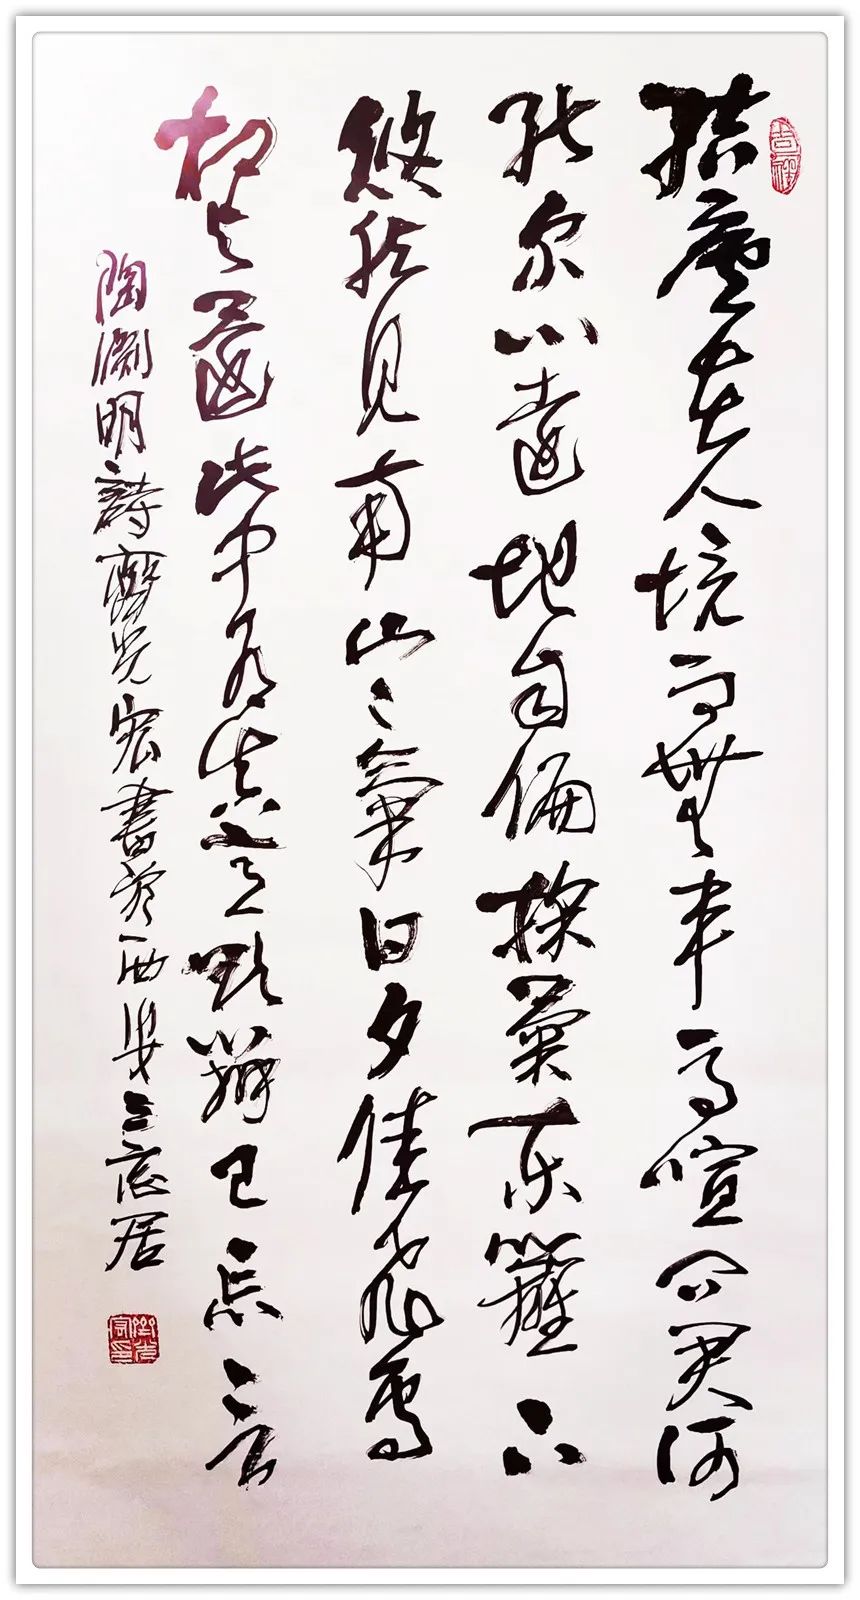 吉祥
結廬在人境而無車馬喧问君何
能尔心遠地自偏採菊東籬下
悠然見南山〻氣日夕佳飛鳥
相与還此中有真意欲辨已忘言
陶淵明詩 光宏書於西 居